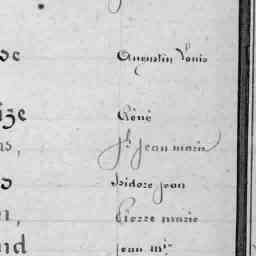 se Augustin Louis
ize Réné
as, Jh Jean marie
Isidore Jean
n, Pierre marie
nd Jean mie